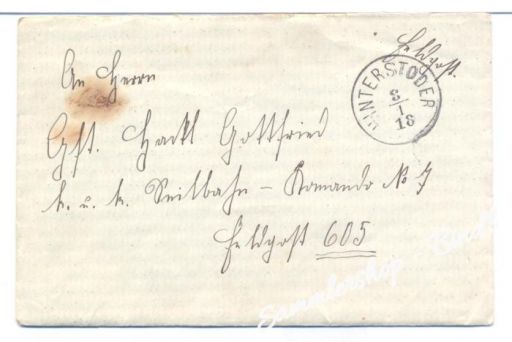 Feldpost.
HINTERSTODER
8
I
18
An Herrn
Gft. Hackl Gottfried
k. u. k. Seilbahn - Komando No 7
Feldpost 605
Sammlershop